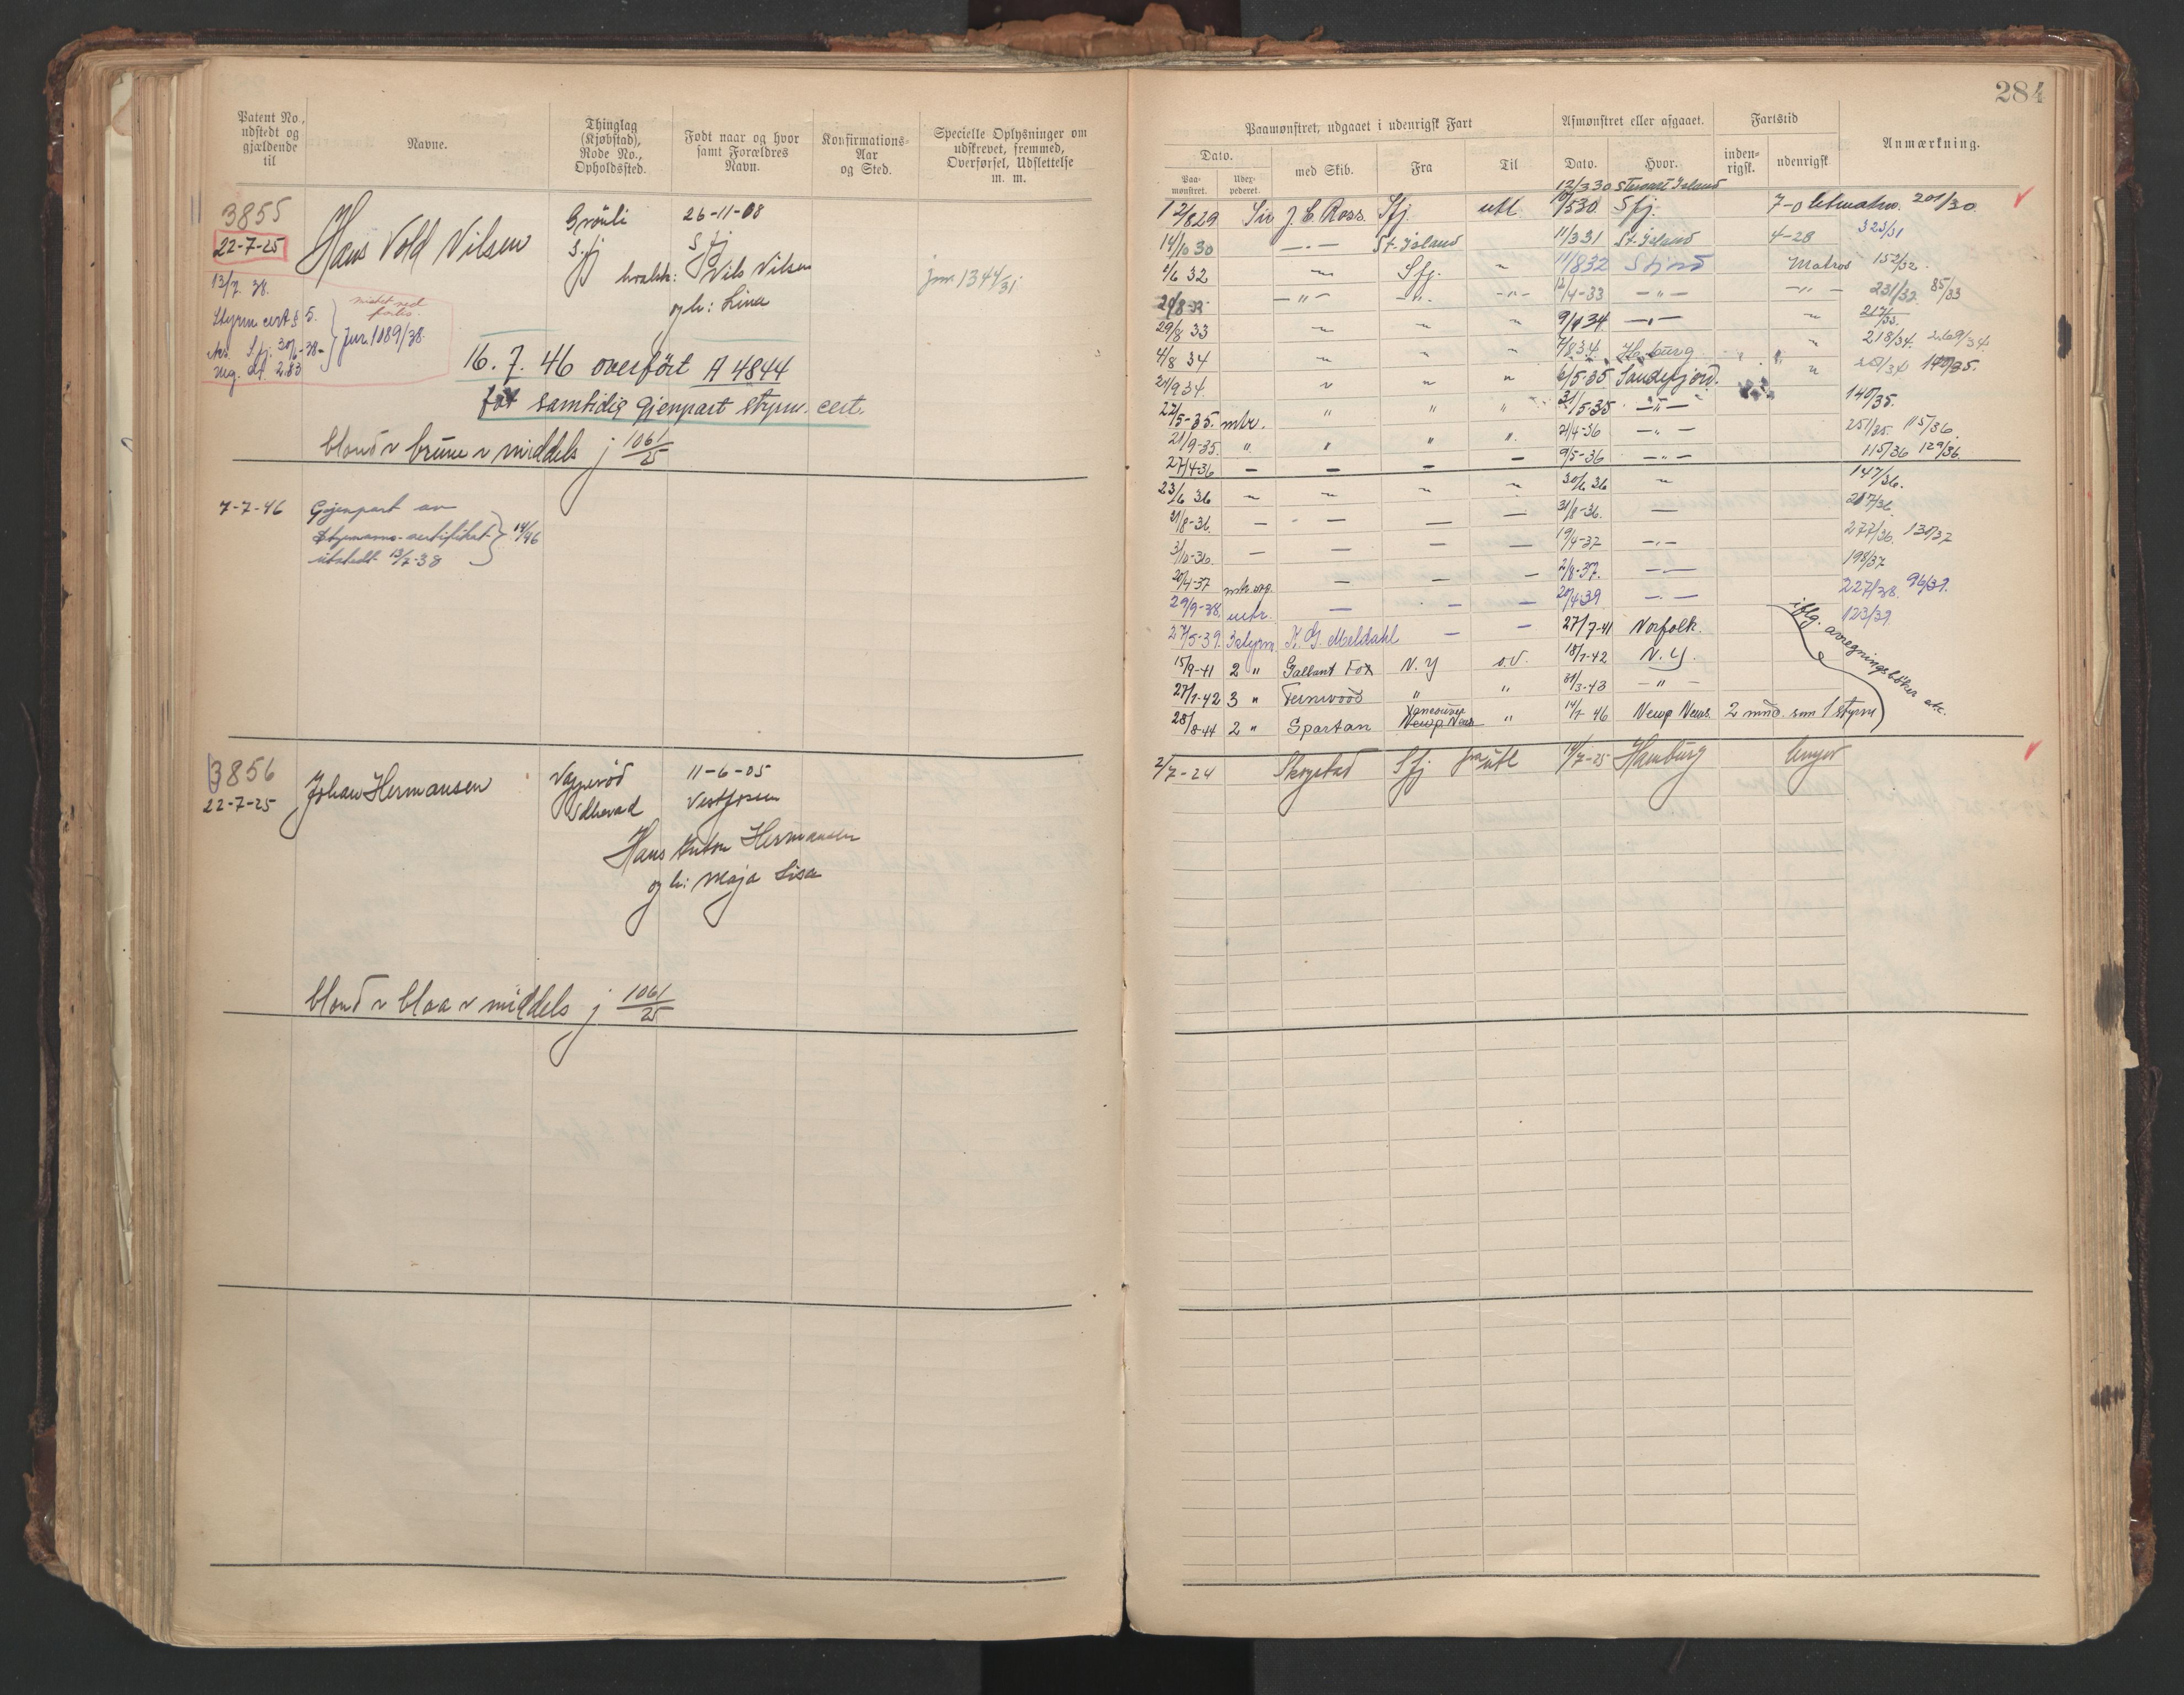 284
Patent No., udstedt og gjældende til
Navne.
Thinglag (Kjøbstad), Rode No., Opholdssted.
Født naar og hvor samt Forældres Navn.
Konfirmations-Aar og Sted.
Specielle Oplysninger om udskrevet, fremmed, Overførsel, Udslettelse m. m.
Paamønstret, udgaaet i udenrigsk Fart
Afmønstret eller afgaaet.
Fartstid
Anmærkning.
Dato.
Paa-mønstret.
Udex-pederet.
med Skib.
Fra
Til
Dato.
Hvor.
inden-rigsk.
udenrigsk
3855
22-7-25
Hans Vold Nilsen
Grönli
S.fj
26-11-08
S fj
hvalsk: Nils Nilsen
og h: Lina
jnr 1344/31
13/7 38.
Styrm cert § 5.
Utst. Sfj. 30/6-38-
Reg. af. 283
mistet ved forlis.
Jnr. 1089/38.
16. 7. 46 overfört A 4844
fåt samtidig gjenpart styrm. cert.
blond v brune v middels j 1061/25
7-7-46 Gjenpart av
Styrmanns-sertifikat
utstedt 13/7-38
14/46
12/3 30 Stewart Island
12/8 29 Sir J. C. Ross. Sfj. utl 10/5 30 Sfj. 7-0 letmatr. 201/30
14/10 30 —"— St. Island 11/3 31 St. Island 4-28 323/31
2/6 32 " Sfj. " 11/8 32 S fjord Matros 152/32.
29/8-32 —"— —"— —"— 12/4-33 —"— —"— 231/32. 85/33
29/8 33 " " " 9/1 34 —"— " 217/33.
4/8 34 " " " 7/8 34 Hburg " 218/34. 269/34.
21/9 34. " " " 6/5-35 Sandefjord. " 140/35.
22/5-35. mtr. " " " 31/5-35 —"— 140/35.
21/9-35. " " " " 21/4-36 —"— 251/35. 115/36.
27/4-36 — — — — 9/5-36 —"— 115/36 129/36.
23/6 36 " " " " 30/6 36 " 147/36.
21/8-36. — — — — 31/8-36. — 217/36.
3/10-36. — — — — 19/4-37 —"— 277/36. 130/37
20/4-37 mtr org. — — — 2/8-37. —"— 198/37
29/9-38. mtr. — — — 20/4 39 —"— 227/38. 96/39.
27/5-39. 3 styrm K. G. Meldahl — — 27/7-41 Norfolk. 123/39
15/9-41 2 " Gallant Fox N.Y o.v. 18/1-42 N.Y.
27/1-42 3 " Fernwood " " 31/3-43 —"—
28/8-44 2 " Spartan Vancouver Newp News " 14/1-46 Newp News. 2 mnd. som 1 styrm
iflg. avregningsböker etc.
3856
22-7-25
Johan Hermansen
11-6-05
Hans Anton Hermansen
og h: Maja Lisa
2/7-24 Skogstad Sfj fra utl 14/7-25 Hamburg
blond v blaa v middels j 1061/25